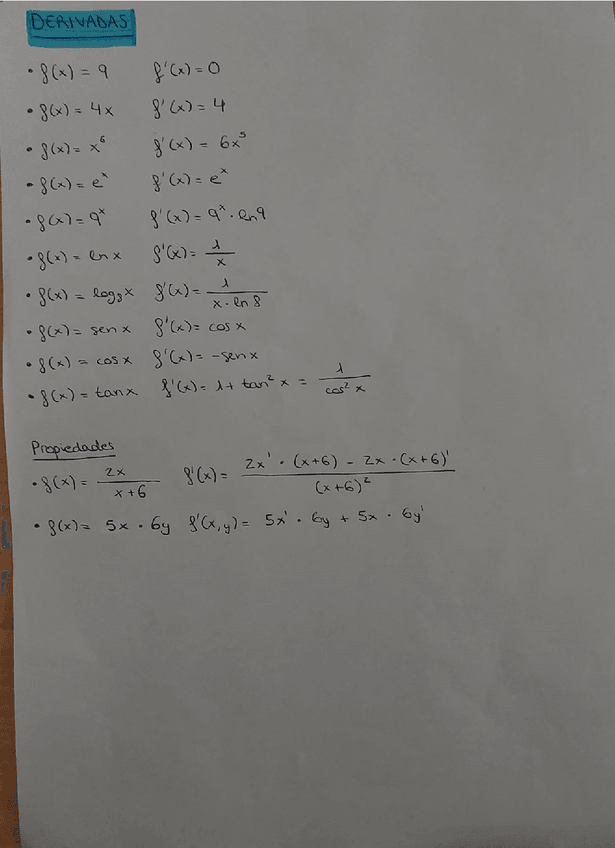 DERIVADAS
• f(x) = 9 f'(x) = 0
• f(x) = 4x f'(x) = 4
• f(x) = x⁶ f'(x) = 6x⁵
• f(x) = eˣ f'(x) = eˣ
• f(x) = 9ˣ f'(x) = 9ˣ · ln9
• f(x) = ln x f'(x) = 1/x
• f(x) = log₈x f'(x) = 1/(x · ln 8)
• f(x) = sen x f'(x) = cos x
• f(x) = cos x f'(x) = -sen x
• f(x) = tan x f'(x) = 1 + tan² x = 1/cos² x
Propiedades
• f(x) = 2x/(x+6) f'(x) = (2x' · (x+6) - 2x · (x+6)')/(x+6)²
• f(x) = 5x · 6y f'(x,y) = 5x' · 6y + 5x · 6y'